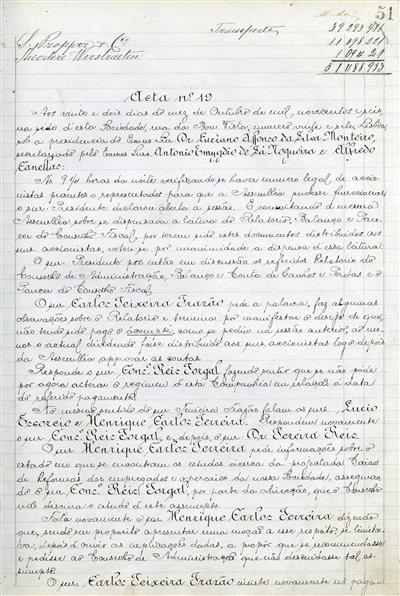 51
Transporte 39 293 471
S. Propper & Cie 11 098 221
Theodore Werstraeten 1 094 291
51 488 983
Acta nº 19
Aos vinte e dois dias do mez de Outubro de mil, novecentos e seis,
na séde d'esta Sociedade, rua da Boa Vista, numero vinte e sete, Lisboa,
sob a presidencia do Exmo. Snr. Dr. Luciano Affonso da Silva Monteiro,
secretariado pelos Exmos. Snrs. Antonio Emygdio de Sá Nogueira e Alfredo
Canellas:
Ás 9 1/4 horas da noite verificando-se haver numero legal, de accio-
nistas presentes e representados para que a Assemblêa pudesse funccionar,
o snr. Presidente declarou aberta a sessão. E consultando a mesma
Assemblêa sobre se dispensava a leitura do Relatorio, Balanço e Pare-
cer do Conselho Fiscal, por terem sido estes documentos distribuidos aos
snrs. accionistas, votou-se por unanimidade a dispensa d'essa leitura.
O snr. Presidente poz então em discussão os referidos Relatorio do
Conselho de Administração, Balanço e Conta de Ganhos e Perdas e o
Parecer do Conselho Fiscal.
O snr. Carlos Teixeira Frazão pede a palavra, faz algumas
observações sobre o Relatorio e termina por manifestar o desejo de que,
não tendo sido pago o acompte, como se pediu na sessão anterior, ao me-
nos o actual dividendo fosse distribuido aos snrs. accionistas logo depois
da Assemblêa approvar as contas.
Responde o snr. Consº. Reis Torgal, fazendo sentir que se não póde
por agora alterar o regimen d'esta Companhia em relação á data
do referido pagamento.
No mesmo sentido do snr. Teixeira Frazão falam os snrs. Lucio
Escorcio e Henrique Carlos Ferreira. Respondem novamente
o snr. Consº. Reis Torgal, e, depois, o snr. Dr. Pereira Reis.
O snr. Henrique Carlos Ferreira pede informações sobre o
estado em que se encontram os estudos ácerca da projectada Caixa
de Reformas dos empregados e operarios da nossa Sociedade, asseguran-
do o snr. Consº. Reis Torgal, por parte da Direcção, que o Conselho
não descura o estudo d'este assumpto.
Fala novamente o snr. Henrique Carlos Ferreira dizendo
que, sendo seu proposito apresentar uma moção a esse respeito, se limita-
va, depois d'ouvir as explicações dadas, a propôr que se recommendasse
e pedisse ao Conselho de Administração que não descuidasse tal as-
sumpto.
O snr. Carlos Teixeira Frazão insiste novamente no paga-